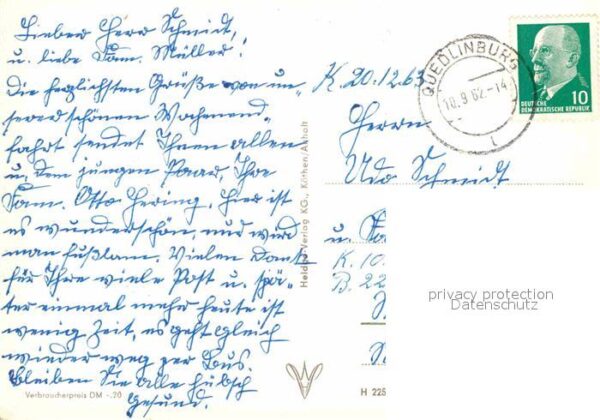 Lieber Herr Schmidt,
u. liebe Fam. Müller!
Die herzlichsten Grüße von un-
serer schönen Wochenend-
fahrt sendet Ihnen allen
u. dem jungen Paar, Ihre
Fam. Otto Hering. Hier ist
es wunderschön, nur wird
man fußlam. Vielen Dank
für Ihre viele Post u. spä-
ter einmal mehr heute ist
wenig Zeit, es geht gleich
wieder weg per Bus.
Bleiben Sie alle hübsch
Gesund.
Verbraucherpreis DM -.20
Heldge-Verlag KG., Köthen/Anhalt
K. 20.12.63
QUEDLINBURG
10.9.62.-14
DEUTSCHE
DEMOKRATISCHE REPUBLIK
10
Herrn
Udo Schmidt
u.
K. 10.
B. 22
H 225
privacy protection
Datenschutz